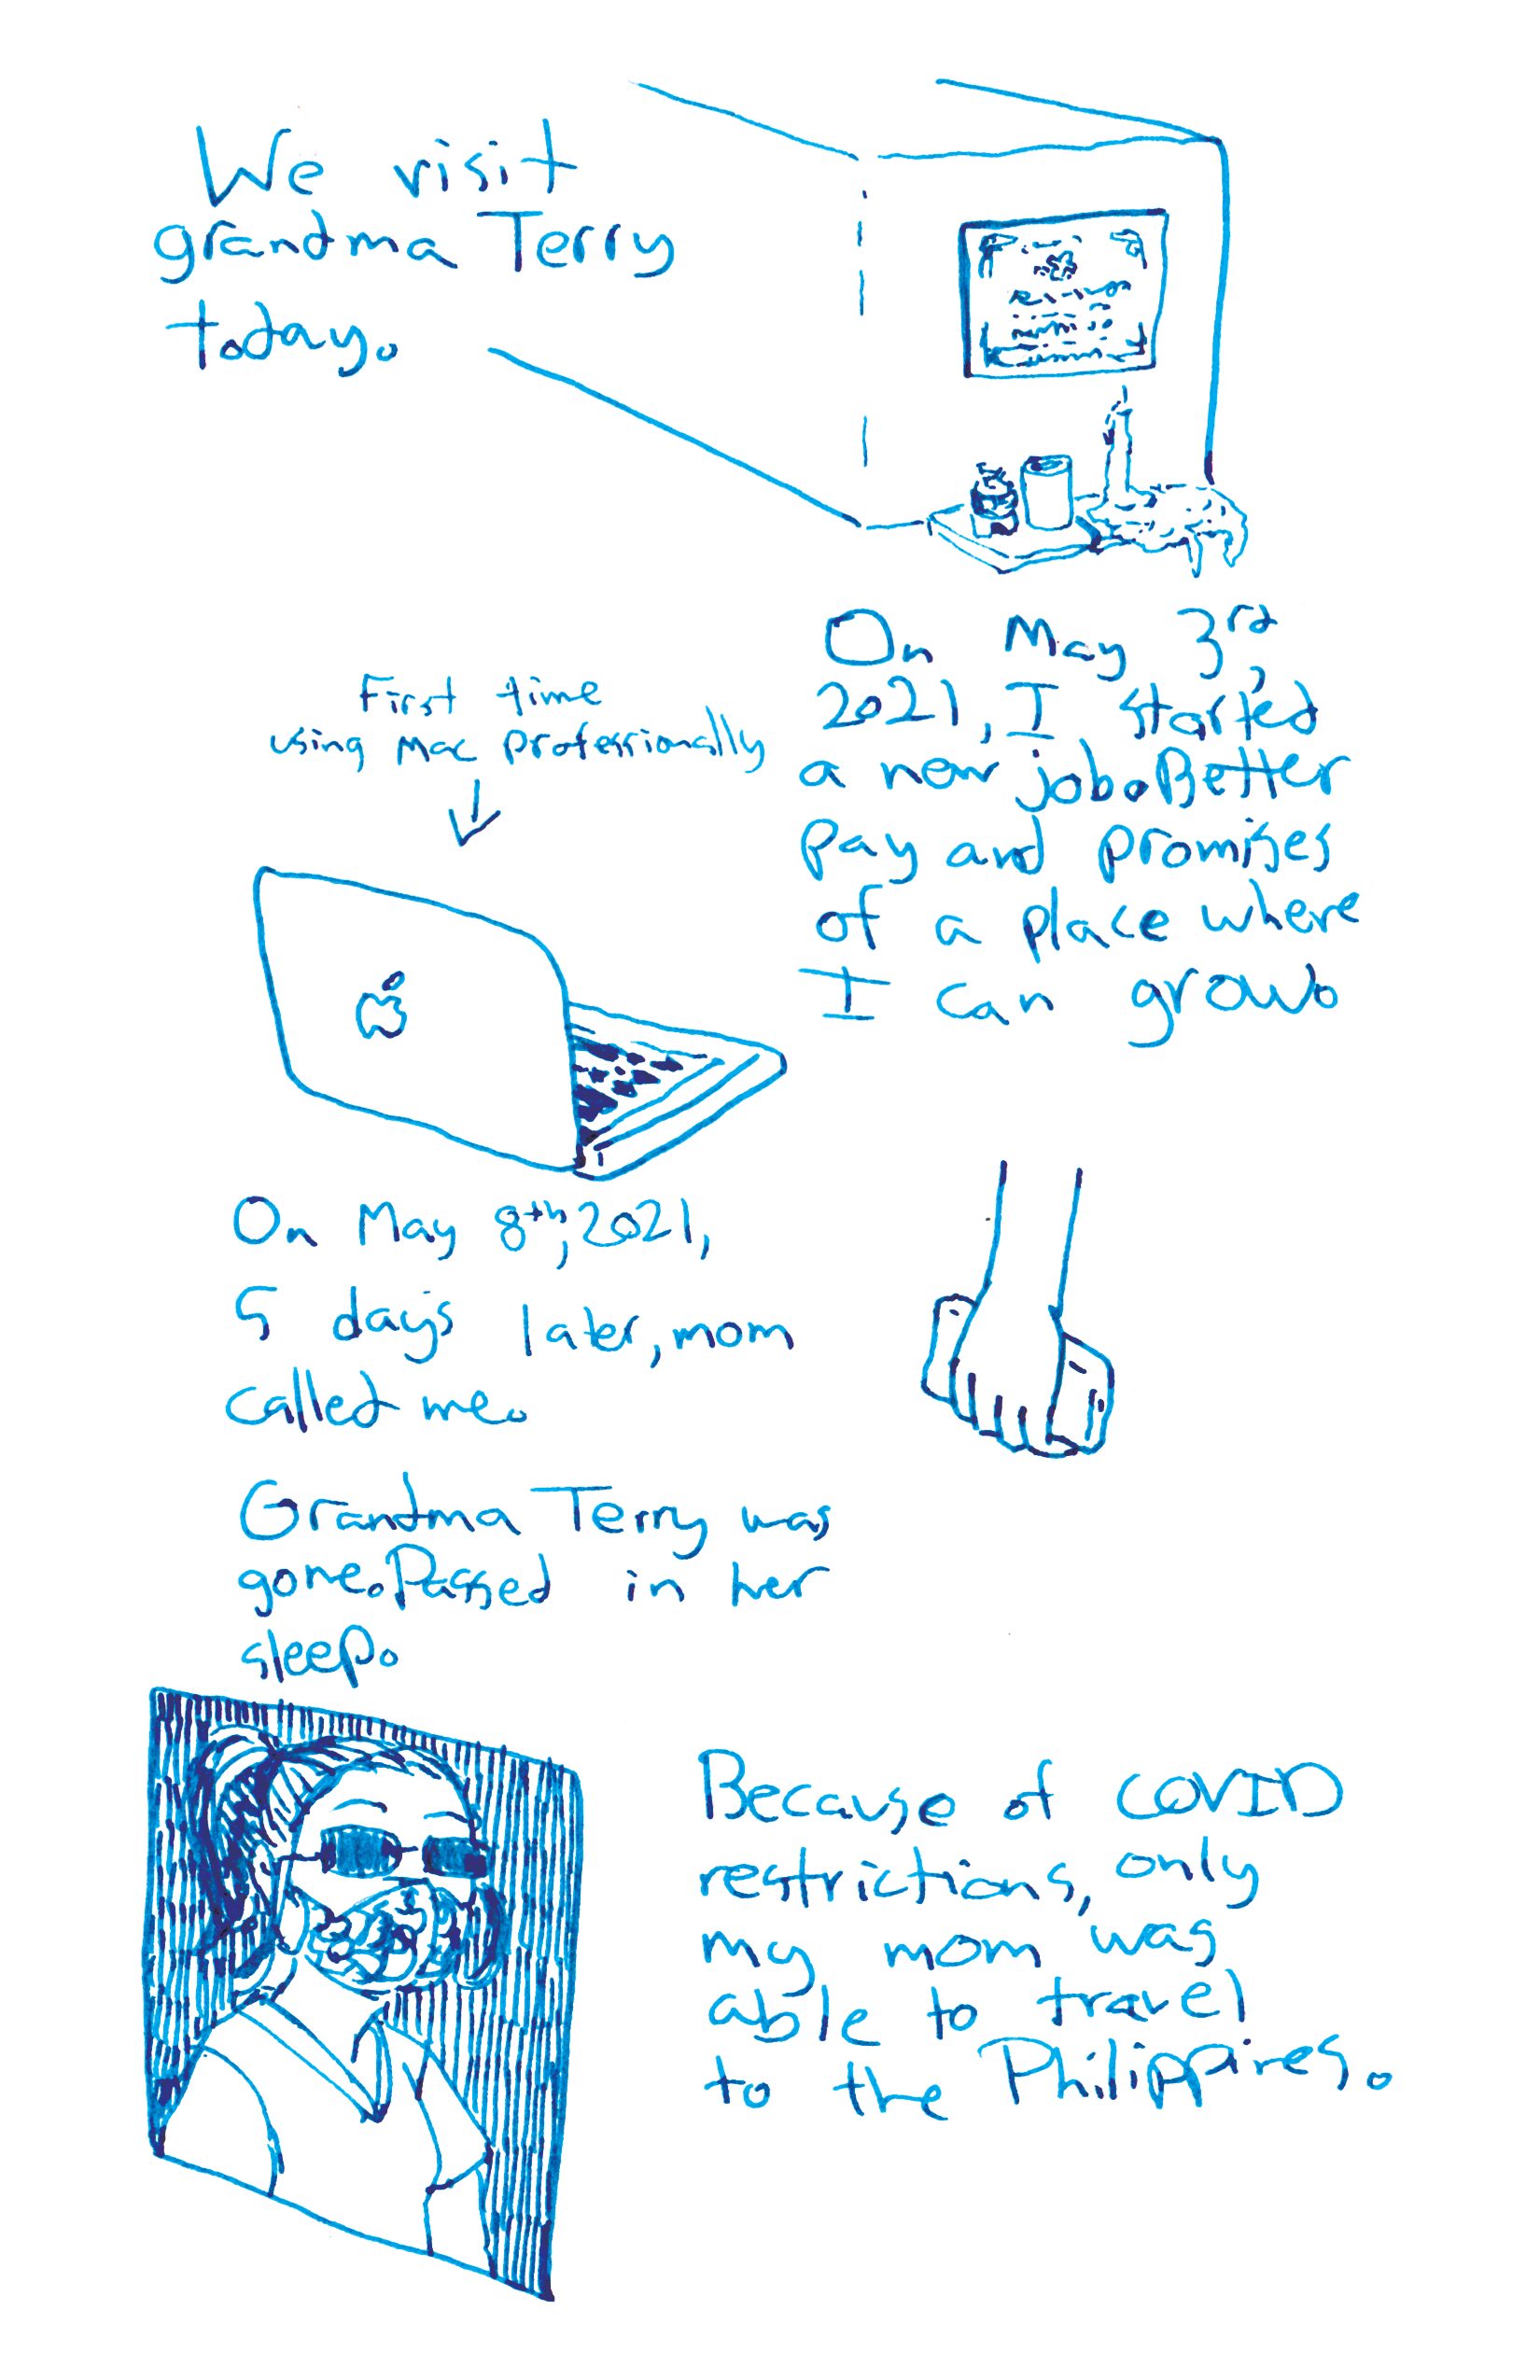 We visit
grandma Terry
today.
On May 3rd,
2021, I started
a new job. Better
pay and promises
of a place where
I can grow.
First time
using Mac professionally
On May 8th, 2021,
5 days later, mom
called me.
Grandma Terry was
gone. Passed in her
sleep.
Because of COVID
restrictions, only
my mom was
able to travel
to the Philippines.